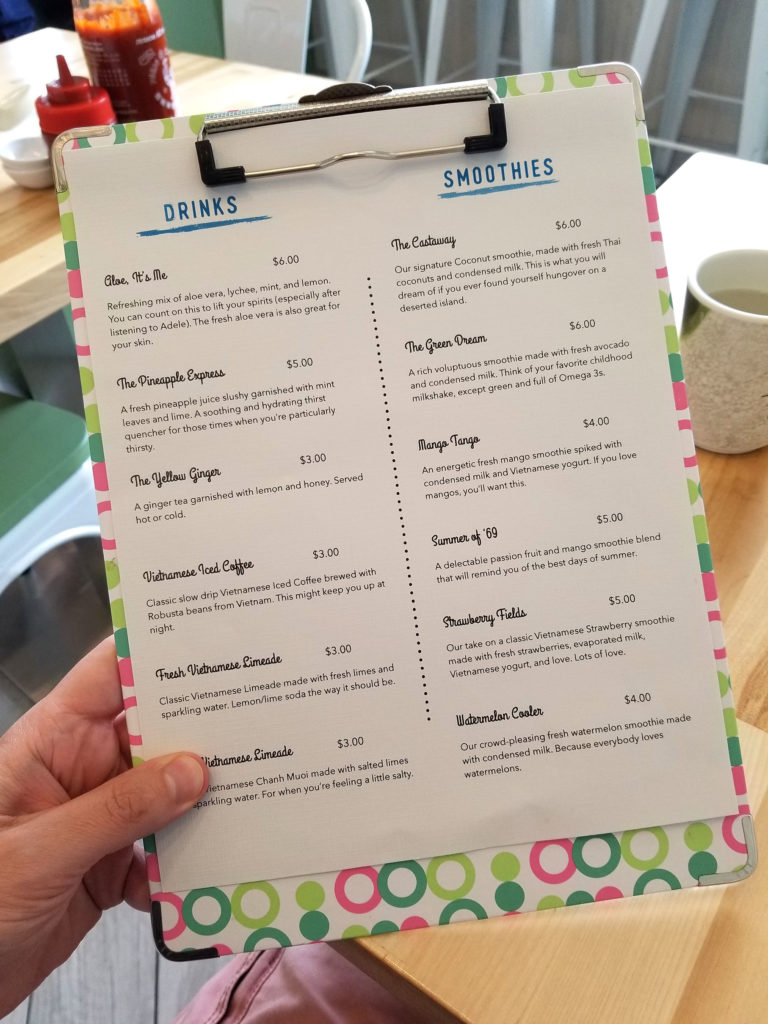 DRINKS
Aloe, It's Me $6.00
Refreshing mix of aloe vera, lychee, mint, and lemon.
You can count on this to lift your spirits (especially after
listening to Adele). The fresh aloe vera is also great for
your skin.
The Pineapple Express $5.00
A fresh pineapple juice slushy garnished with mint
leaves and lime. A soothing and hydrating thirst
quencher for those times when you're particularly
thirsty.
The Yellow Ginger $3.00
A ginger tea garnished with lemon and honey. Served
hot or cold.
Vietnamese Iced Coffee $3.00
Classic slow drip Vietnamese Iced Coffee brewed with
Robusta beans from Vietnam. This might keep you up at
night.
Fresh Vietnamese Limeade $3.00
Classic Vietnamese Limeade made with fresh limes and
sparkling water. Lemon/lime soda the way it should be.
Vietnamese Limeade $3.00
Vietnamese Chanh Muoi made with salted limes
sparkling water. For when you're feeling a little salty.
SMOOTHIES
The Castaway $6.00
Our signature Coconut smoothie, made with fresh Thai
coconuts and condensed milk. This is what you will
dream of if you ever found yourself hungover on a
deserted island.
The Green Dream $6.00
A rich voluptuous smoothie made with fresh avocado
and condensed milk. Think of your favorite childhood
milkshake, except green and full of Omega 3s.
Mango Tango $4.00
An energetic fresh mango smoothie spiked with
condensed milk and Vietnamese yogurt. If you love
mangos, you'll want this.
Summer of '69 $5.00
A delectable passion fruit and mango smoothie blend
that will remind you of the best days of summer.
Strawberry Fields $5.00
Our take on a classic Vietnamese Strawberry smoothie
made with fresh strawberries, evaporated milk,
Vietnamese yogurt, and love. Lots of love.
Watermelon Cooler $4.00
Our crowd-pleasing fresh watermelon smoothie made
with condensed milk. Because everybody loves
watermelons.